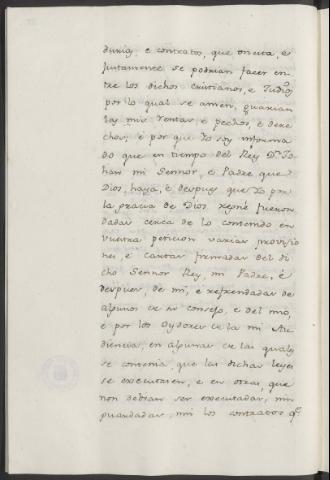 durias, e contratos, que oncita, e
justamente se podrian facer en-
tre los dichos cristianos, e Judios
por lo qual se amen, guarian
las mis rentas e pechos, e dere
chos, e por que Yo soy informa
do que en tiempo del Rey Dn Jo-
han mi Sennor, e Padre que
Dios, haya, e despues que Yo por
la gracia de Dios regné fueron
dadas cerca de lo contenido en
vuestra peticion varias provisio
nes, e cartas firmadas del di
cho Sennor Rey, mi Padre, e
despues, de mi, e refrendadas de
algunos de su consejo, e del mio,
e por los Oydores de la mi Au-
diencia, en algunas de las quales
se contenia, que las dichas leyes
se executasen, e en otras, que
non debian ser executadas, nin
guardadas, nin los contratos qe